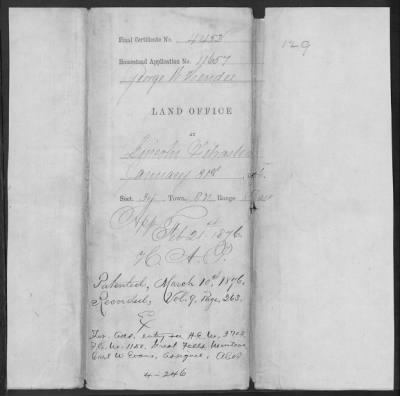 129
Final Certificate No. 4453
Homestead Application No. 11657
George W
LAND OFFICE
AT
Lincoln Nebraska
January
Sect. Town. 8 N Range
App
Feb 21st 1876
H. A. P.
Patented, March 10th, 1876.
Recorded, Vol. 9, Page, 263.
For entry see H.E. No. 3702
F.C. No. 1150, Great Falls, Montana
Carl W Evans, Assignee,
4-246